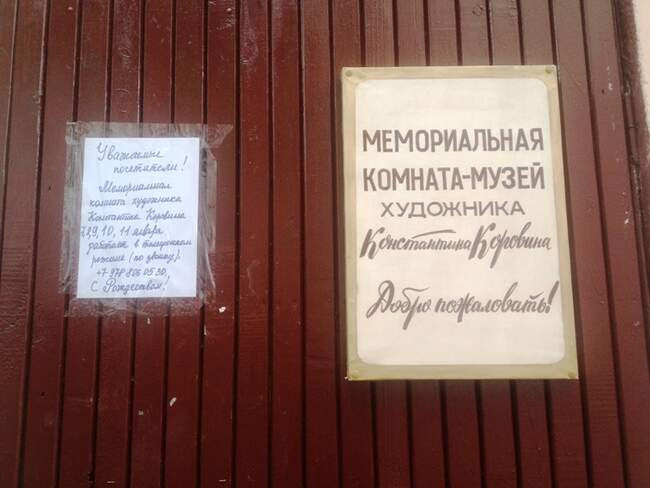 Уважаемые
посетители!
Мемориальная
комната художника
Константина Коровина
7,8,9,10, 11 января
работает в
режиме (по звонку).
+7 978 806 05 30.
С Рождеством!
МЕМОРИАЛЬНАЯ
КОМНАТА-МУЗЕЙ
ХУДОЖНИКА
Константина Коровина
Добро пожаловать!